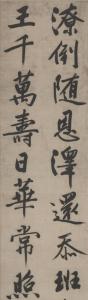 潦倒随恩澤還忝班
王千萬壽日華常照